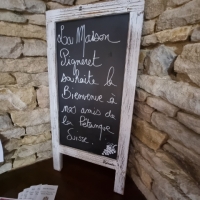 La Maison
Pigneret
souhaite la
Bienvenue à
nos amis de
la Pétanque
Suisse.